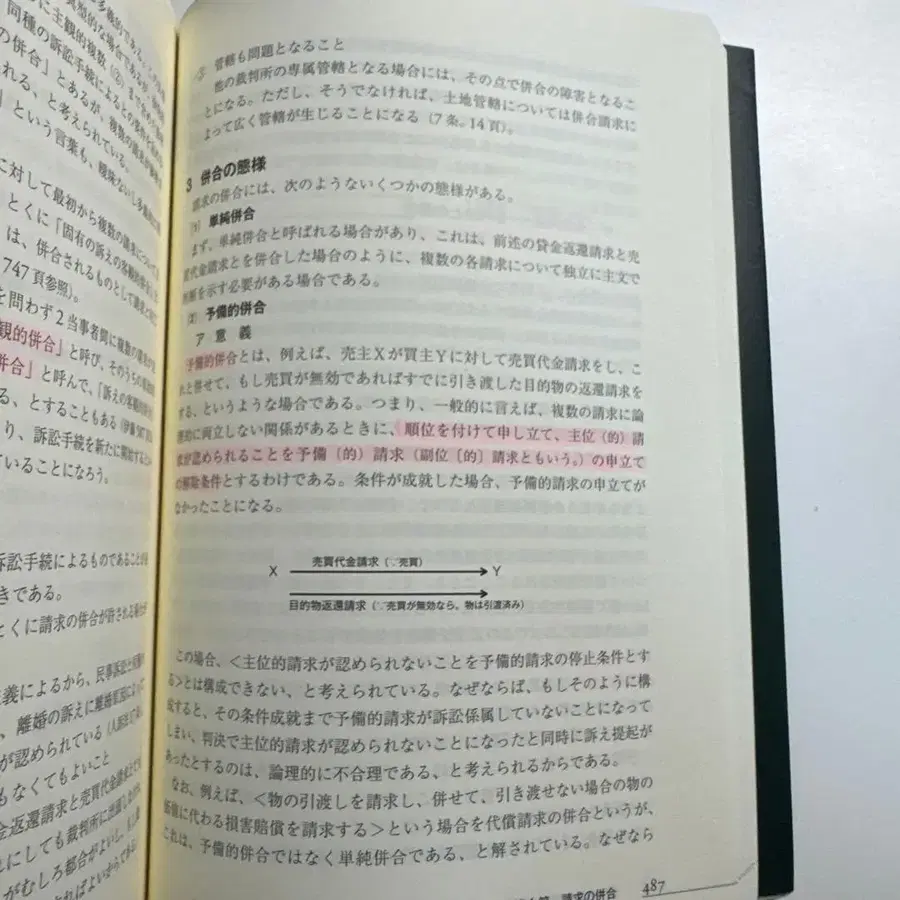 多義的である。
典型的な場合である
に主観的複数（②）まで含めて
同種の訴訟手続によるとの条件を
の併合」とあるが、複数の
される、と考えられている。
」という言葉も、曖昧ないし多義的に
に対して最初から複数の請求について
とくに「固有の訴えの客観的併合」
は、併合されるものとして
747頁参照）。
を問わず2当事者間に複数の
観的併合」と呼び、そのうちの
併合」と呼んで、「訴えの客観的併合
、とすることもある（伊藤
り、訴訟手続を新たに開始する
ていることになろう。
訴訟手続によるものであることが
きである。
とくに請求の併合が許される場合が
義によるから、民事訴訟と
、離婚の訴えに離婚原因
が認められている（人訴
もなくてもよいこと
金返還請求と売買代金請求
れにしても裁判所に出頭し
がむしろ都合がよいし、
ればよいからである。
管轄も問題となること
他の裁判所の専属管轄となる場合には、その点で併合の障害となるこ
とになる。ただし、そうでなければ、土地管轄については併合請求に
よって広く管轄が生じることになる（7条。14頁）。
3 併合の態様
請求の併合には、次のようないくつかの態様がある。
(1) 単純併合
まず、単純併合と呼ばれる場合があり、これは、前述の貸金返還請求と売
買代金請求とを併合した場合のように、複数の各請求について独立に主文で
判断を示す必要がある場合である。
(2) 予備的併合
ア 意 義
予備的併合とは、例えば、売主Xが買主Yに対して売買代金請求をし、こ
れと併せて、もし売買が無効であればすでに引き渡した目的物の返還請求を
する、というような場合である。つまり、一般的に言えば、複数の請求に論
理的に両立しない関係があるときに、順位を付けて申し立て、主位（的）請
求が認められることを予備（的）請求（副位〔的〕請求ともいう。）の申立て
の解除条件とするわけである。条件が成就した場合、予備的請求の申立てが
なかったことになる。
売買代金請求（∵売買）
X Y
目的物返還請求（∵売買が無効なら。物は引渡済み）
この場合、＜主位的請求が認められないことを予備的請求の停止条件とす
る＞とは構成できない、と考えられている。なぜならば、もしそのように構
成すると、その条件成就まで予備的請求が訴訟係属していないことになって
しまい、判決で主位的請求が認められないことになったと同時に訴え提起が
あったとするのは、論理的に不合理である、と考えられるからである。
なお、例えば、＜物の引渡しを請求し、併せて、引き渡せない場合の物の
価値に代わる損害賠償を請求する＞という場合を代償請求の併合というが、
これは、予備的併合ではなく単純併合である、と解されている。なぜなら
請求の併合 487